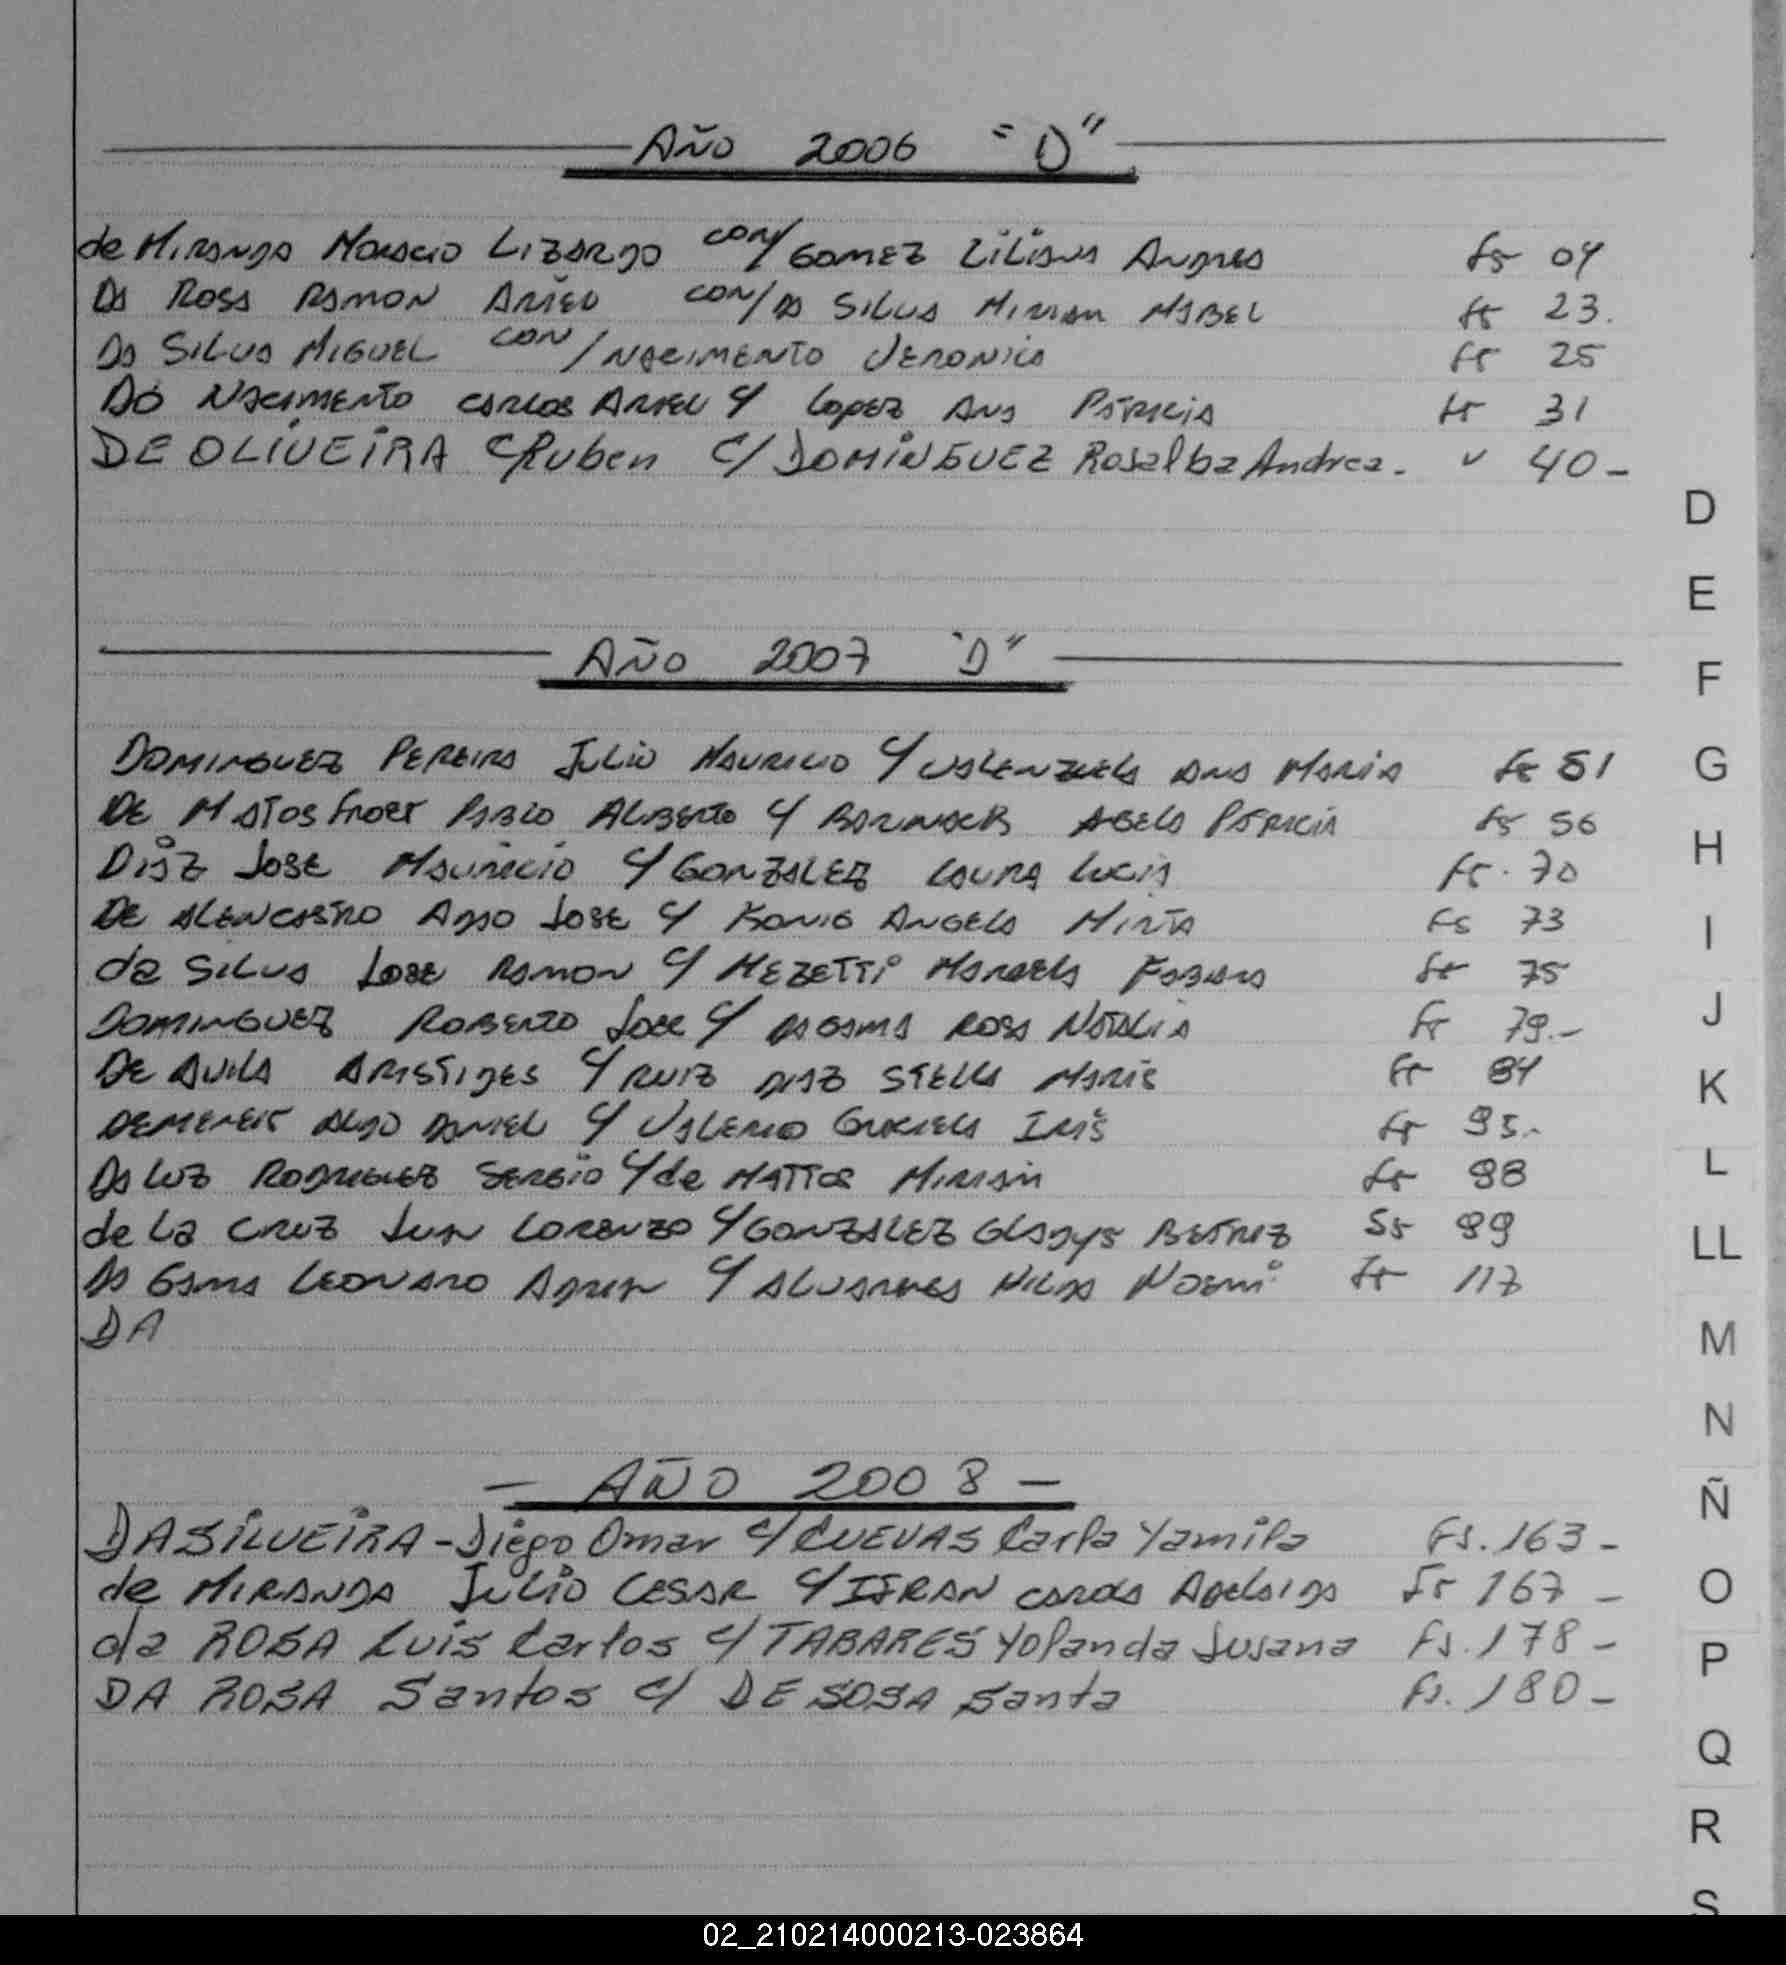 Año 2006 "D"
de Miranda Horacio Lizardo con/Gomez Liliana Andrea fs 04
Da Rosa Ramon Ariel con/Da Silva Mirian Mabel fs 23.
Da Silva Miguel con/Nacimento Veronica fs 25
Do Nacimento Carlos Ariel c/ Lopez Ana Patricia fs 31
DE OLIVEIRA Ruben c/ DOMINGUEZ Rosalba Andrea. " 40-
D
E
Año 2007 "D"
F
Dominguez Pereira Julio Mauricio c/ Valenzuela Ana Maria fs 51
G
De Matos Pablo Alberto c/ Patricia fs 56
H
Diaz Jose Mauricio c/ Gonzalez Laura Lucia fs. 70
De Alencastro Jose c/ Konig Angela Mirta fs 73
I
da Silva Jose Ramon c/ Mezetti Fabiana fs 75
Dominguez Roberto Jose c/ Da Gama Rosa Natalia fs 79.-
J
De Avila Aristides c/ Ruiz Diaz Stella Maris fs 84
K
Aldo Daniel c/ Valerio Graciela Iris fs 95.-
Da Luz Rodriguez Sergio c/ de Mattos Mirian fs 98
L
de La Cruz Juan Lorenzo c/ Gonzalez Gladys Beatriz fs 99
LL
Da Gama Leonardo Adrian c/ Hilda Noemi fs 117
DA
M
N
- AÑO 2008 -
Ñ
DA SILVEIRA - Diego Omar c/ CUEVAS Carla Yamila Fs. 163-
de MIRANDA JULIO CESAR c/ IFRAN Adelaida Fs 167-
O
da ROSA Luis Carlos c/ TABARES Yolanda Susana Fs. 178-
P
DA ROSA Santos c/ DE SOSA Santa Fs. 180-
Q
R
S
02_210214000213-023864